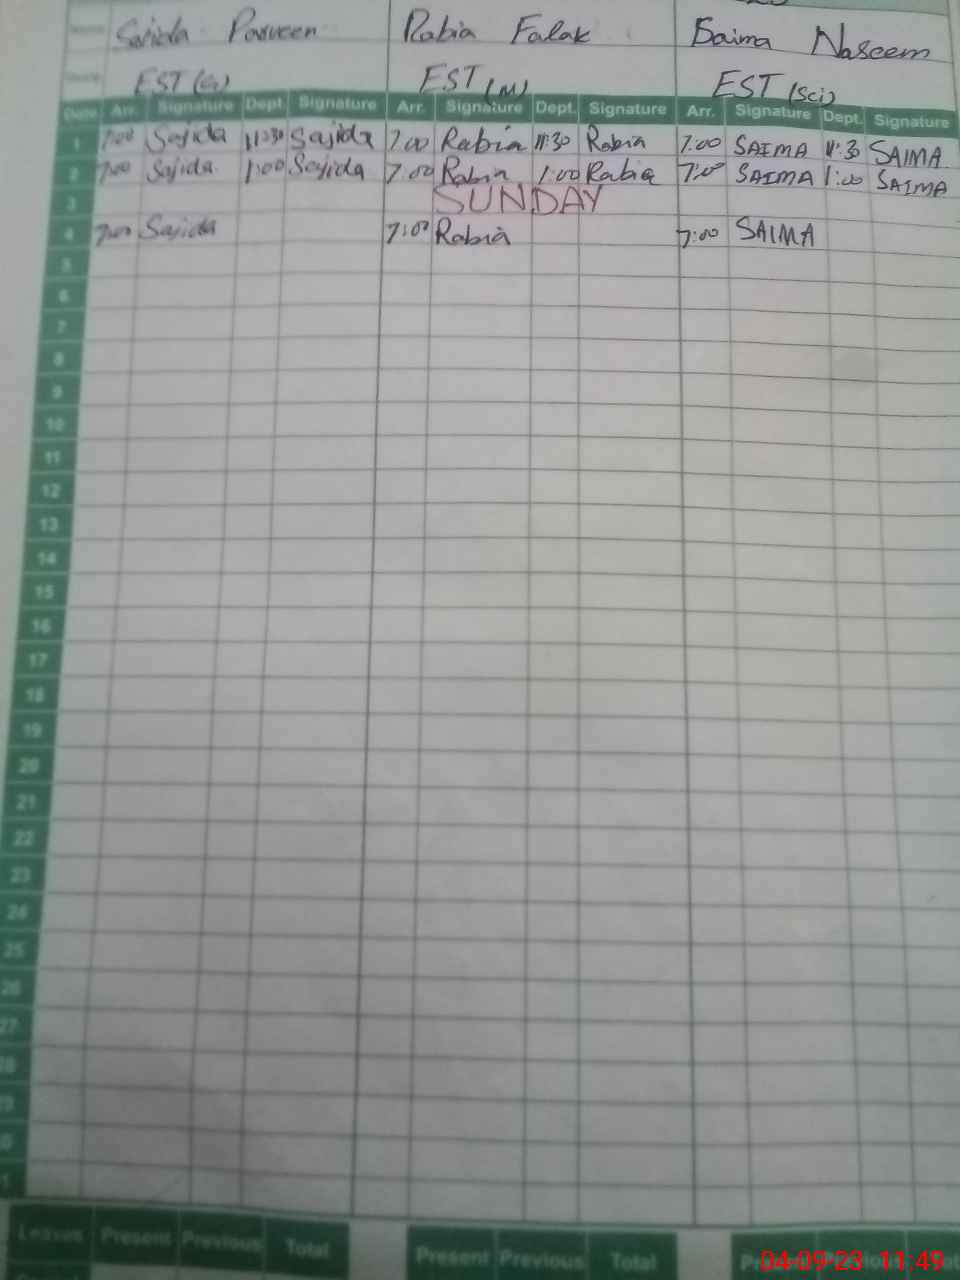 Name Sajida Parveen Rabia Falak Saima Naseem
EST (G) EST (M) EST (Sci)
Date Arr. Signature Dept. Signature Arr. Signature Dept. Signature Arr. Signature Dept. Signature
1 7:00 Sajida 11:30 Sajida 7:00 Rabia 11:30 Rabia 7:00 SAIMA 11:30 SAIMA
2 7:00 Sajida 1:00 Sajida 7:00 Rabia 1:00 Rabia 7:00 SAIMA 1:00 SAIMA
3 SUNDAY
4 7:00 Sajida 7:00 Rabia 7:00 SAIMA
5
6
7
8
9
10
11
12
13
14
15
16
17
18
19
20
21
22
23
24
25
26
27
8
9
0
1
Leaves Present Previous Total Present Previous Total
04-09-23 11:49